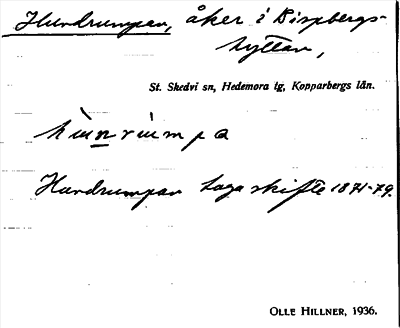 Hundrumpan, åker i Bispbergs-
hyttan,
St. Skedvi sn, Hedemora tg, Kopparbergs län.
Hundrumpan Laga skifte 1871-79.
OLLE HILLNER, 1936.